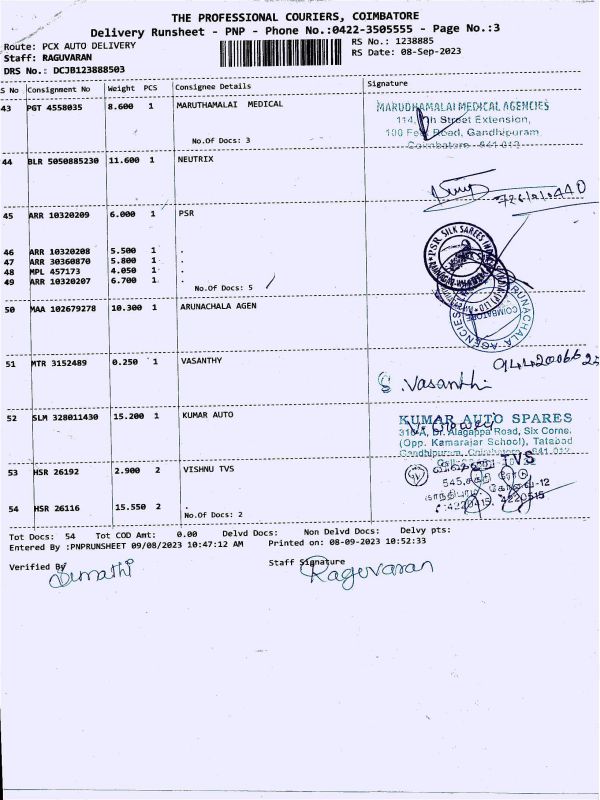 THE PROFESSIONAL COURIERS, COIMBATORE
Delivery Runsheet - PNP - Phone No.:0422-3505555 - Page No.:3
Route: PCX AUTO DELIVERY
RS No.: 1238885
Staff: RAGUVARAN
RS Date: 08-Sep-2023
DRS No.: DCJB123888503
S No Consignment No Weight PCS Consignee Details Signature
43 PGT 4558035 8.600 1 MARUTHAMALAI MEDICAL
MARUDHAMALAI MEDICAL AGENCIES
Street Extension,
100 Feet Road, Gandhipuram,
No.Of Docs: 3
Coimbatore - 641 012
44 BLR 5050885230 11.600 1 NEUTRIX
45 ARR 10320209 6.000 1 PSR
46 ARR 10320208 5.500 1 .
47 ARR 30360870 5.800 1 .
48 MPL 457173 4.050 1 .
49 ARR 10320207 6.700 1 .
No.Of Docs: 5
PSR SILK SAREES
50 MAA 102679278 10.300 1 ARUNACHALA AGEN
ARUNACHALA AGENCIES
COIMBATORE
51 MTR 3152489 0.250 1 VASANTHY
S. Vasanthi
52 SLM 328011430 15.200 1 KUMAR AUTO
KUMAR AUTO SPARES
316-A, Dr. Alagappa Road, Six Corne.
(Opp. Kamarajar School), Tatabad
Gandhipuram, Coimbatore - 641 012
53 HSR 26192 2.900 2 VISHNU TVS
TVS
545, சக்தி ரோடு
காந்திபுரம், கோவை-12
: 4220415, 4220515
54 HSR 26116 15.550 2 .
No.Of Docs: 2
Tot Docs: 54 Tot COD Amt: 0.00 Delvd Docs: Non Delvd Docs: Delvy pts:
Entered By :PNPRUNSHEET 09/08/2023 10:47:12 AM Printed on: 08-09-2023 10:52:33
Verified By
Sumathi
Staff Signature
Raguvaran